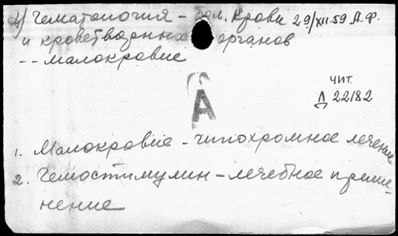 2) Гематология – зол. Крови 29/XII-59 А.Ф.
и кроветворных органов
-- малокровие
чит.
Д 22182
А
1. Малокровие – гипохромное лечение
2. Гемостимулин – лечебное приме-
нение